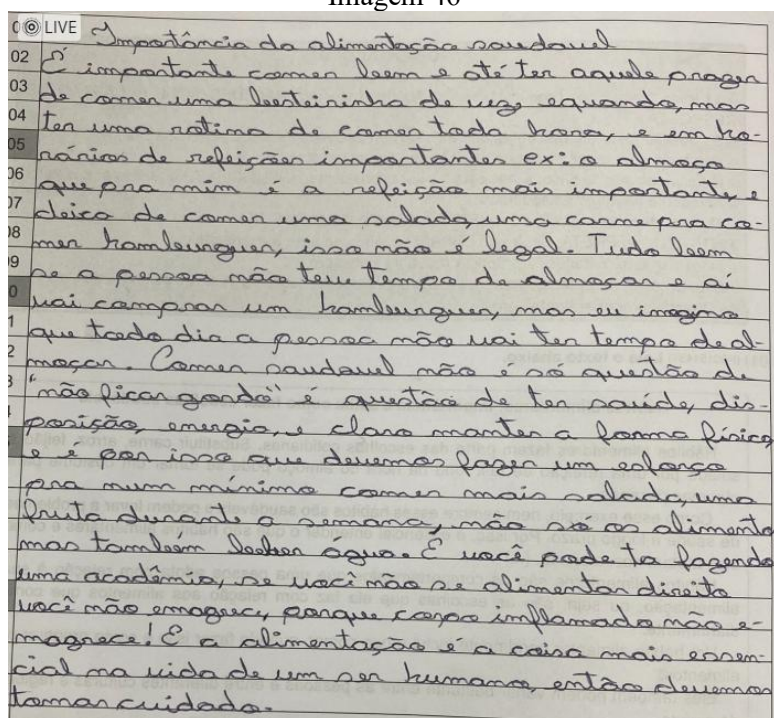 Imagem 40
LIVE
01 Importância da alimentação saudavel
02 É importante comer bem e até ter aquele prazer
03 de comer uma besteirinha de vez equando, mas
04 ter uma rotina de comer toda hora, e em ho-
05 rários de refeições importantes ex: o almoço
06 que pra mim é a refeição mais importante, e
07 deixa de comer uma salada, uma carne pra co-
08 mer hamburguer, isso não é legal. Tudo bem
09 se a pessoa não teve tempo de almoçar e aí
0 vai comprar um hamburguer, mas eu imagino
1 que todo dia a pessoa não vai ter tempo de al-
2 moçar. Comer saudavel não é só questão de
3 "não ficar gordo" é questão de ter saúde, dis-
posição, energia, e claro manter a forma física
e é por isso que devemos fazer um esforço
pra num mínimo comer mais salada, uma
fruta durant a semana, não so os alimento
mas também beber agua. E você pode ta fazendo
uma acadêmia, se você não se alimentar direito
você não emagrece, porque corpo inflamado não e-
magrece! E a alimentação é a coisa mais essen-
cial na vida de um ser humano, então devemos
tomar cuidado.